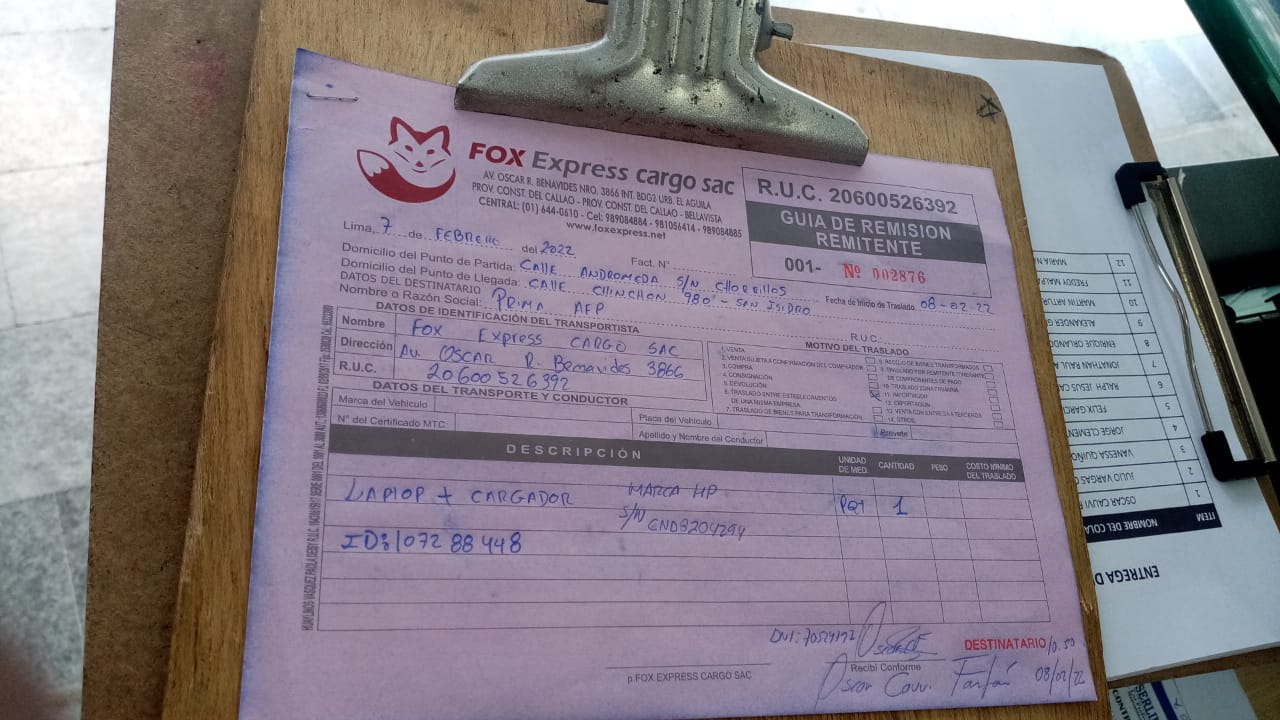 FOX Express cargo sac
AV. OSCAR R. BENAVIDES NRO. 3866 INT. BDG2 URB. EL AGUILA
PROV. CONST. DEL CALLAO - PROV. CONST. DEL CALLAO - BELLAVISTA
CENTRAL: (01) 644-0610 - Cel: 989084884 - 981056414 - 989084885
www.foxexpress.net
R.U.C. 20600526392
GUIA DE REMISION
REMITENTE
001- Nº 002876
Lima, 7 de FEBRERO del 2022 Fact. N°
Domicilio del Punto de Partida: CALLE ANDROMEDA S/N CHORRILLOS
Domicilio del Punto de Llegada: CALLE CHINCHON 980 - SAN ISIDRO Fecha de Inicio de Traslado 08-02-22
DATOS DEL DESTINATARIO
Nombre o Razón Social: PRIMA AFP R.U.C.
DATOS DE IDENTIFICACIÓN DEL TRANSPORTISTA
Nombre Fox Express CARGO SAC
Dirección Av. OSCAR R. Benavides 3866
R.U.C. 20600526392
MOTIVO DEL TRASLADO
1. VENTA
2. VENTA SUJETA A CONFIRMACIÓN DEL COMPRADOR
3. COMPRA
4. CONSIGNACIÓN
5. DEVOLUCIÓN
6. TRASLADO ENTRE ESTABLECIMIENTOS
DE UNA MISMA EMPRESA
7. TRASLADO DE BIENES PARA TRANSFORMACIÓN
8. RECOJO DE BIENES TRANSFORMADOS
9. TRASLADO POR EMISOR ITINERANTE
DE COMPROBANTES DE PAGO
10. TRASLADO ZONA PRIMARIA
11. IMPORTACIÓN
12. EXPORTACIÓN
13. VENTA CON ENTREGA A TERCEROS
14. OTROS
DATOS DEL TRANSPORTE Y CONDUCTOR
Marca del Vehículo Placa del Vehículo
N° del Certificado MTC: Apellido y Nombre del Conductor Brevete
DESCRIPCIÓN UNIDAD DE MED. CANTIDAD PESO COSTO MINIMO DEL TRASLADO
LAPTOP + CARGADOR MARCA HP PQT 1
S/N CND8204294
ID:107288448
DNI: 70529192
DESTINATARIO
p.FOX EXPRESS CARGO SAC
Recibí Conforme
Oscar Farfán 08/02/22
12
FREDDY MALP 11
MARTIN ARTUR 10
ALEXANDER G 9
ENRIQUE ORLAND 8
JONATHAN RAUL A 7
RALPH JESUS CA 6
FELIX GARC 5
JORGE CLEMEN 4
VANESSA QUIÑO 3
JULIO VARGAS 2
OSCAR CALVI 1
ITEM NOMBRE DEL COLA
ENTREGA D